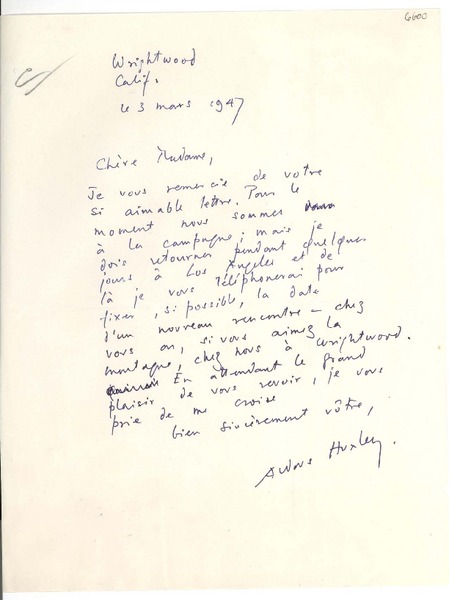 6600
Wrightwood
Calif.
le 3 mars 1947
Chère Madame,
Je vous remercie de votre
si aimable lettre. Pour le
moment nous sommes
à la campagne; mais je
dois retourner pendant quelques
jours à Los Angeles et de
là je vous téléphonerai pour
fixer, si possible, la date
d'un nouveau rencontre – chez
vous ou, si vous aimez la
montagne, chez nous à Wrightwood.
En attendant le grand
plaisir de vous revoir, je vous
prie de me croire
bien sincèrement vôtre,
Aldous Huxley.